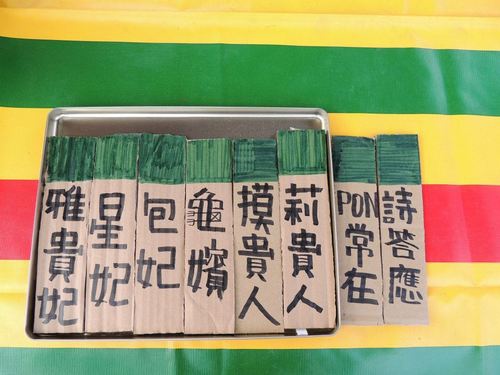 雅貴妃
星妃
包妃
龜嬪
摸貴人
莉貴人
PON常在
詩答應